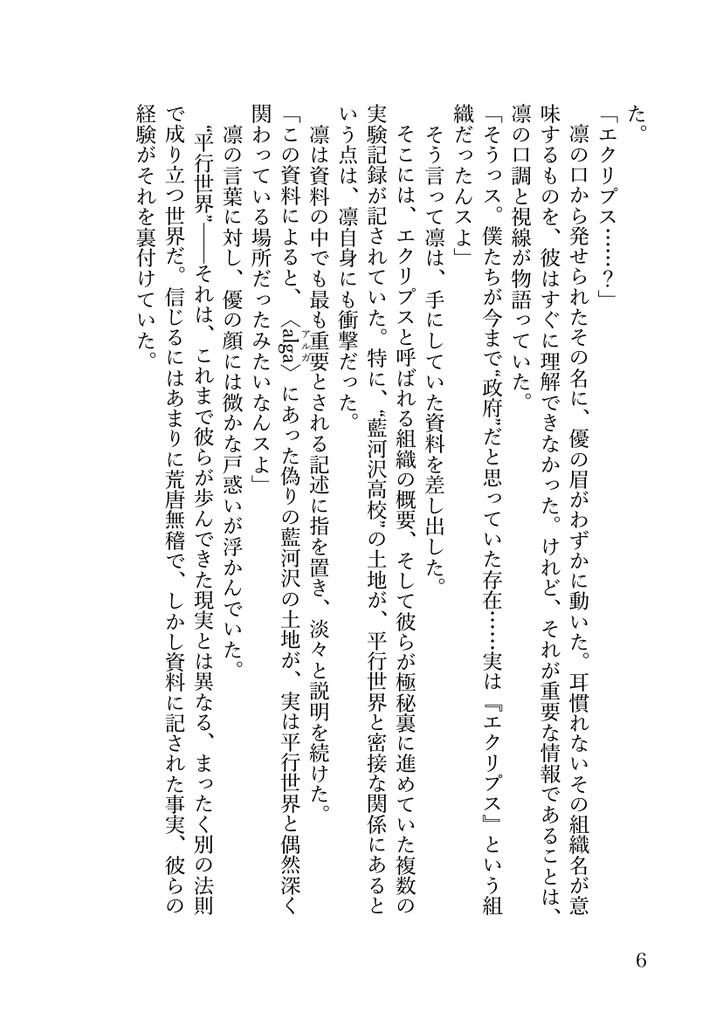 た。
「エクリプス……？」
凛の口から発せられたその名に、優の眉がわずかに動いた。耳慣れないその組織名が意
味するものを、彼はすぐに理解できなかった。けれど、それが重要な情報であることは、
凛の口調と視線が物語っていた。
「そうっス。僕たちが今まで“政府”だと思っていた存在……実は『エクリプス』という組
織だったんスよ」
そう言って凛は、手にしていた資料を差し出した。
そこには、エクリプスと呼ばれる組織の概要、そして彼らが極秘裏に進めていた複数の
実験記録が記されていた。特に、“藍河沢高校”の土地が、平行世界と密接な関係にあると
いう点は、凛自身にも衝撃だった。
凛は資料の中でも最も重要とされる記述に指を置き、淡々と説明を続けた。
「この資料によると、〈alga〉にあった偽りの藍河沢の土地が、実は平行世界と偶然深く
アルガ
関わっている場所だったみたいなんスよ」
凛の言葉に対し、優の顔には微かな戸惑いが浮かんでいた。
“平行世界”――それは、これまで彼らが歩んできた現実とは異なる、まったく別の法則
で成り立つ世界だ。信じるにはあまりに荒唐無稽で、しかし資料に記された事実、彼らの
経験がそれを裏付けていた。
6